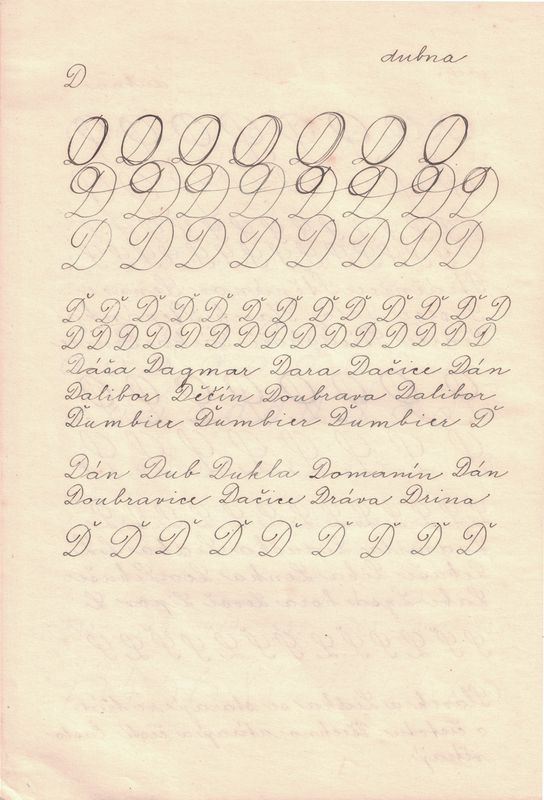 dubna
D
O O O O O O O
D D D D D D D D
D D D D D D D D
Ď Ď Ď Ď Ď Ď Ď Ď Ď Ď Ď Ď Ď
D D D D D D D D D D D D D D D
Dáša Dagmar Dara Dačice Dán
Dalibor Děčín Doubrava Dalibor
Ďumbier Ďumbier Ďumbier Ď
Dán Dub Dukla Domanín Dán
Doubravice Dačice Dráva Drina
Ď Ď Ď Ď Ď Ď Ď Ď Ď